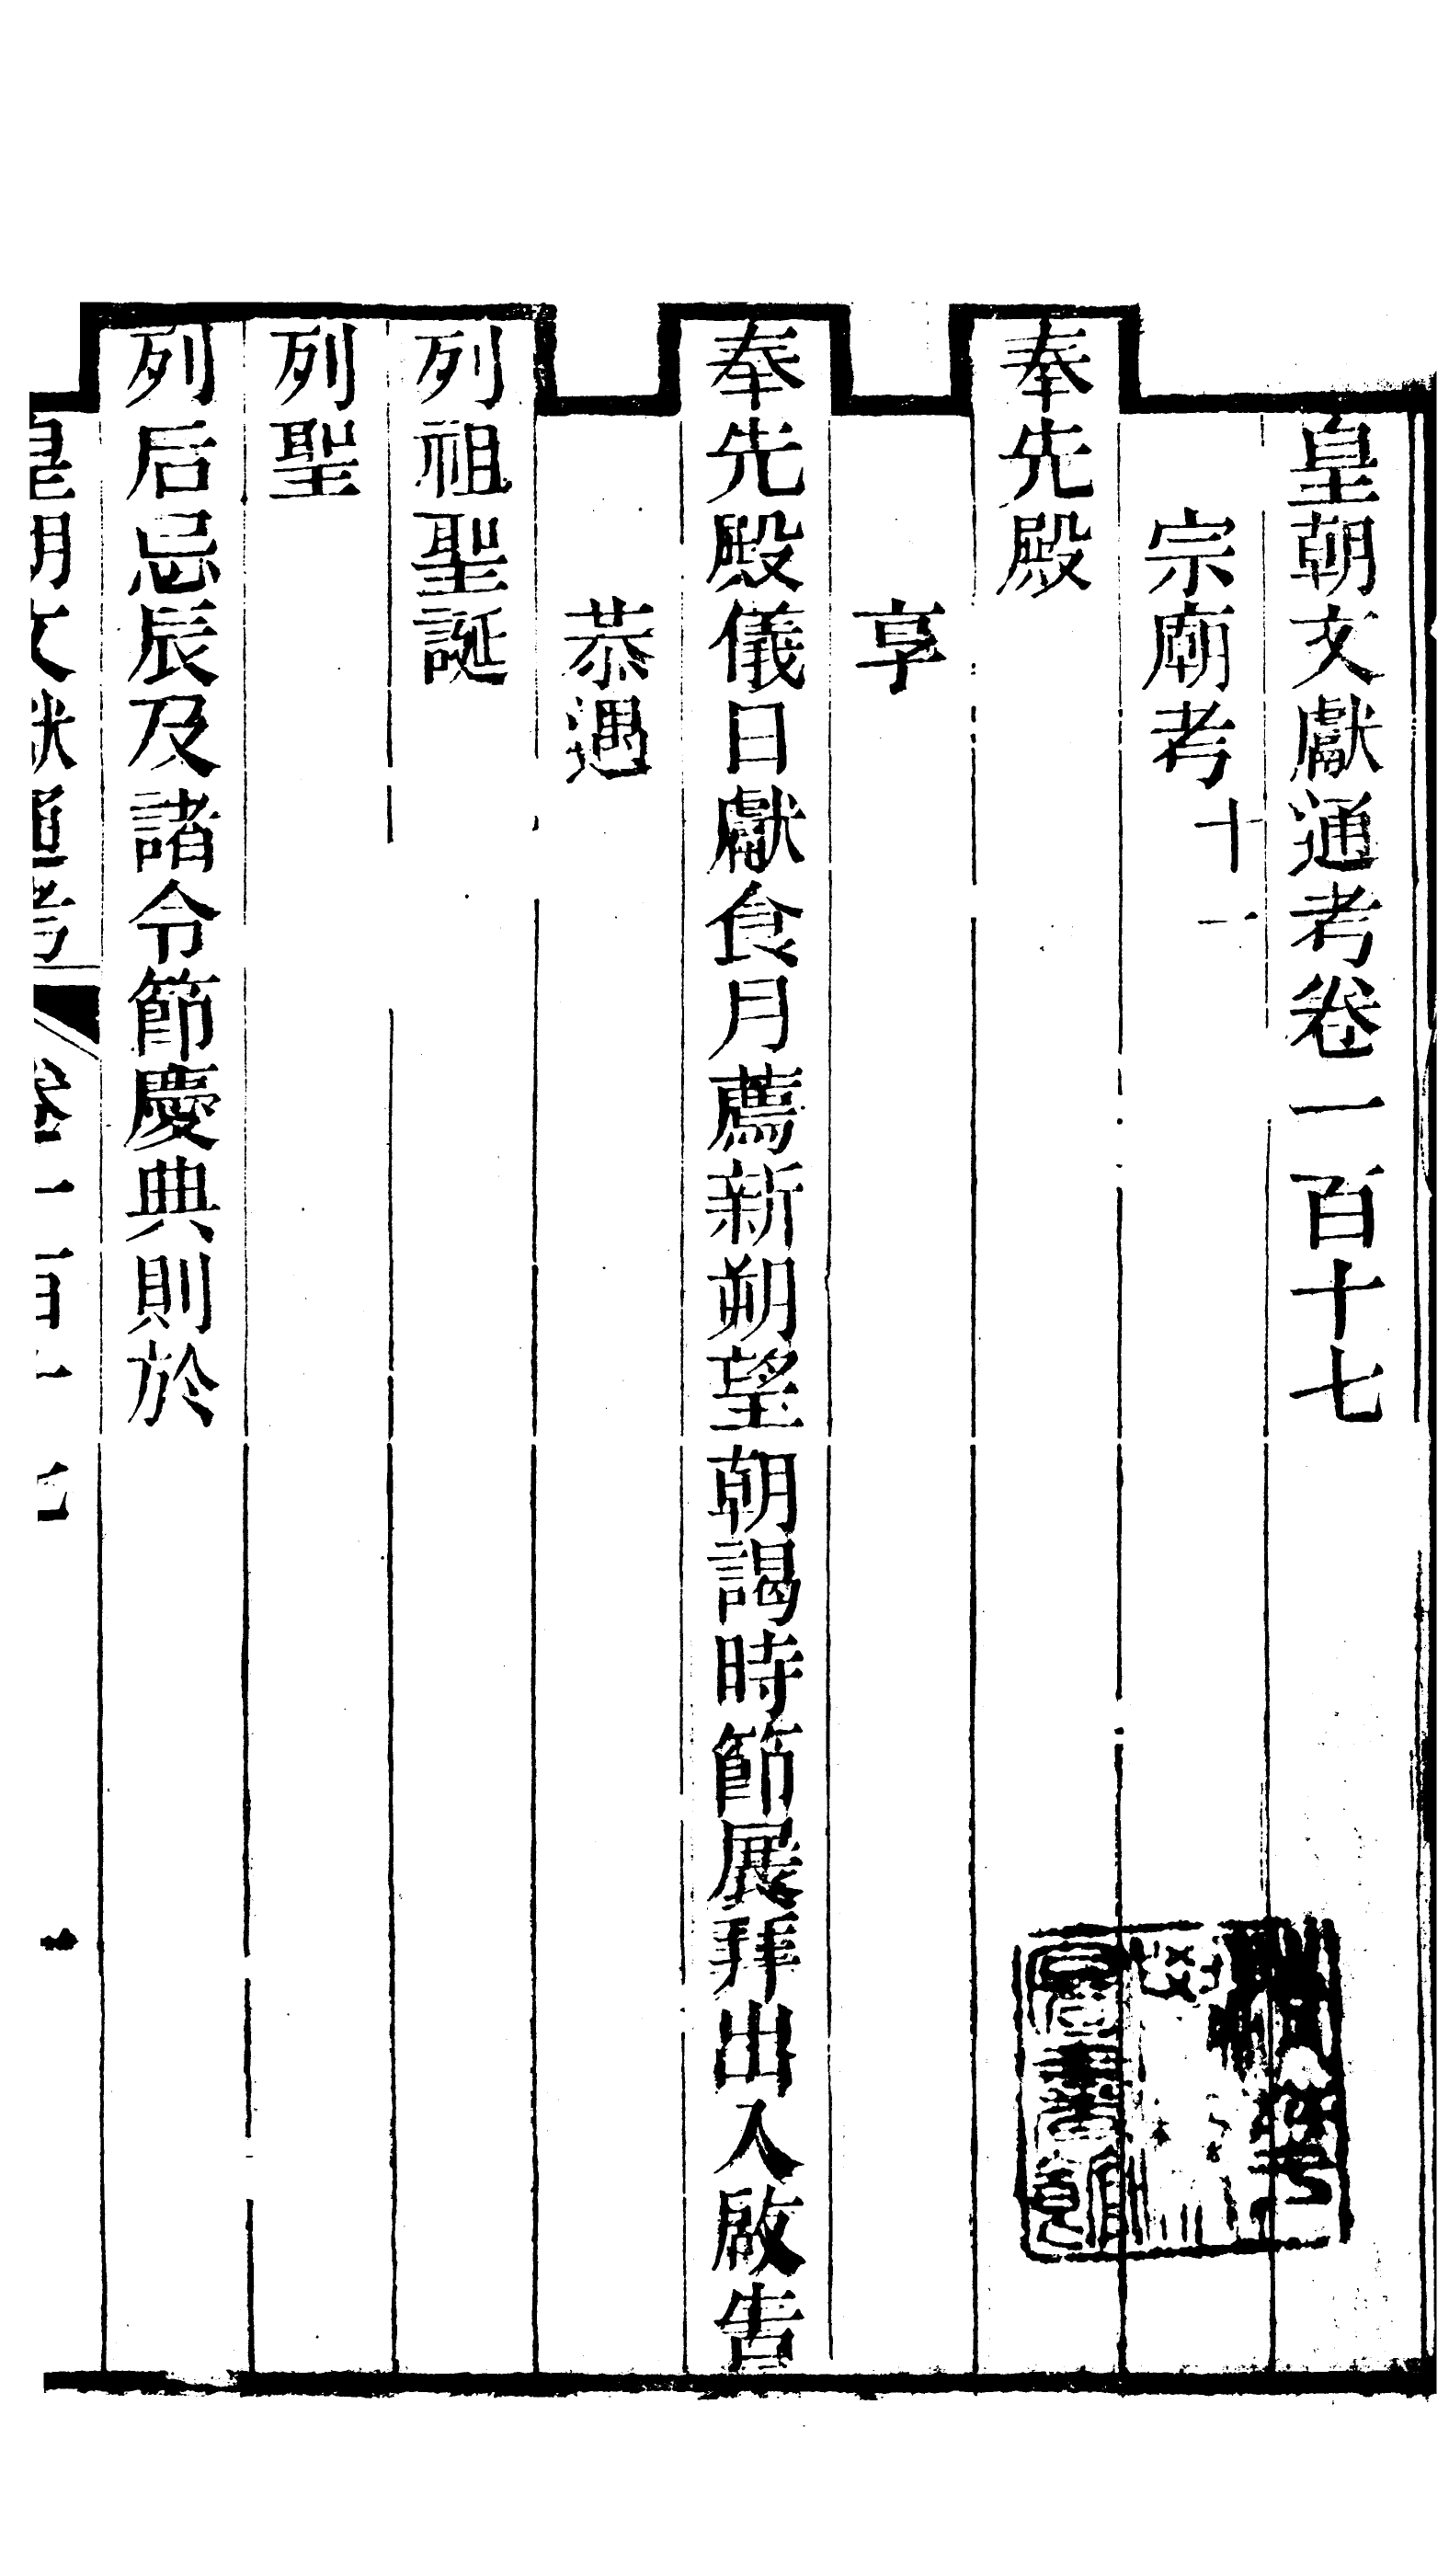 皇朝文獻通考卷一百十七
宗廟考十一
奉先殿
享
奉先殿儀日獻食月薦新朔望朝謁時節展拜出入啟告
恭遇
列祖聖誕
列聖
列后忌辰及諸令節慶典則於
皇朝文獻通考 卷一百十七 一